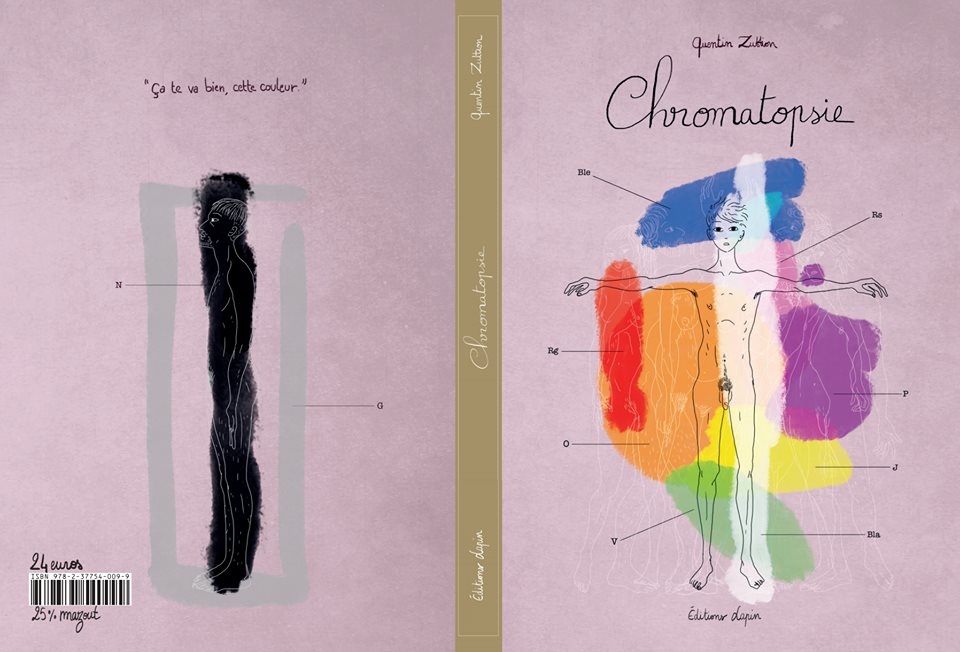 “Ça te va bien, cette couleur.”
N
G
24 euros
ISBN 978-2-37754-009-9
25% mazout
Quentin Zuttion
Chromatopsie
Éditions Lapin
Quentin Zuttion
Chromatopsie
Ble
Rs
Rg
P
O
J
V
Bla
Éditions Lapin